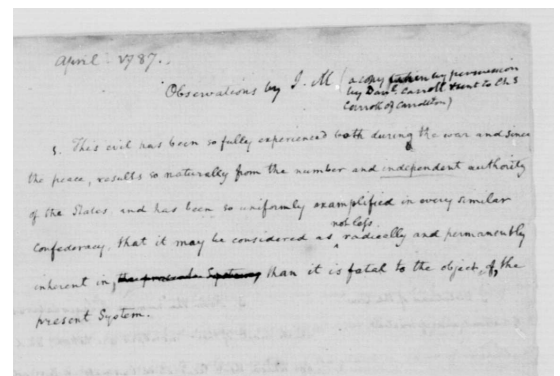 April 1787.
Observations by J. M. (a copy taken by permission
by Danl. Carroll & sent to Chs
Carroll of Carrollton)
1. This evil has been so fully experienced both during the war and since
the peace, results so naturally from the number and independent authority
of the States, and has been so uniformly examplified in every similar
Confederacy, that it may be considered as not less radically and permanently
inherent in, than it is fatal to the object of, the
present System.